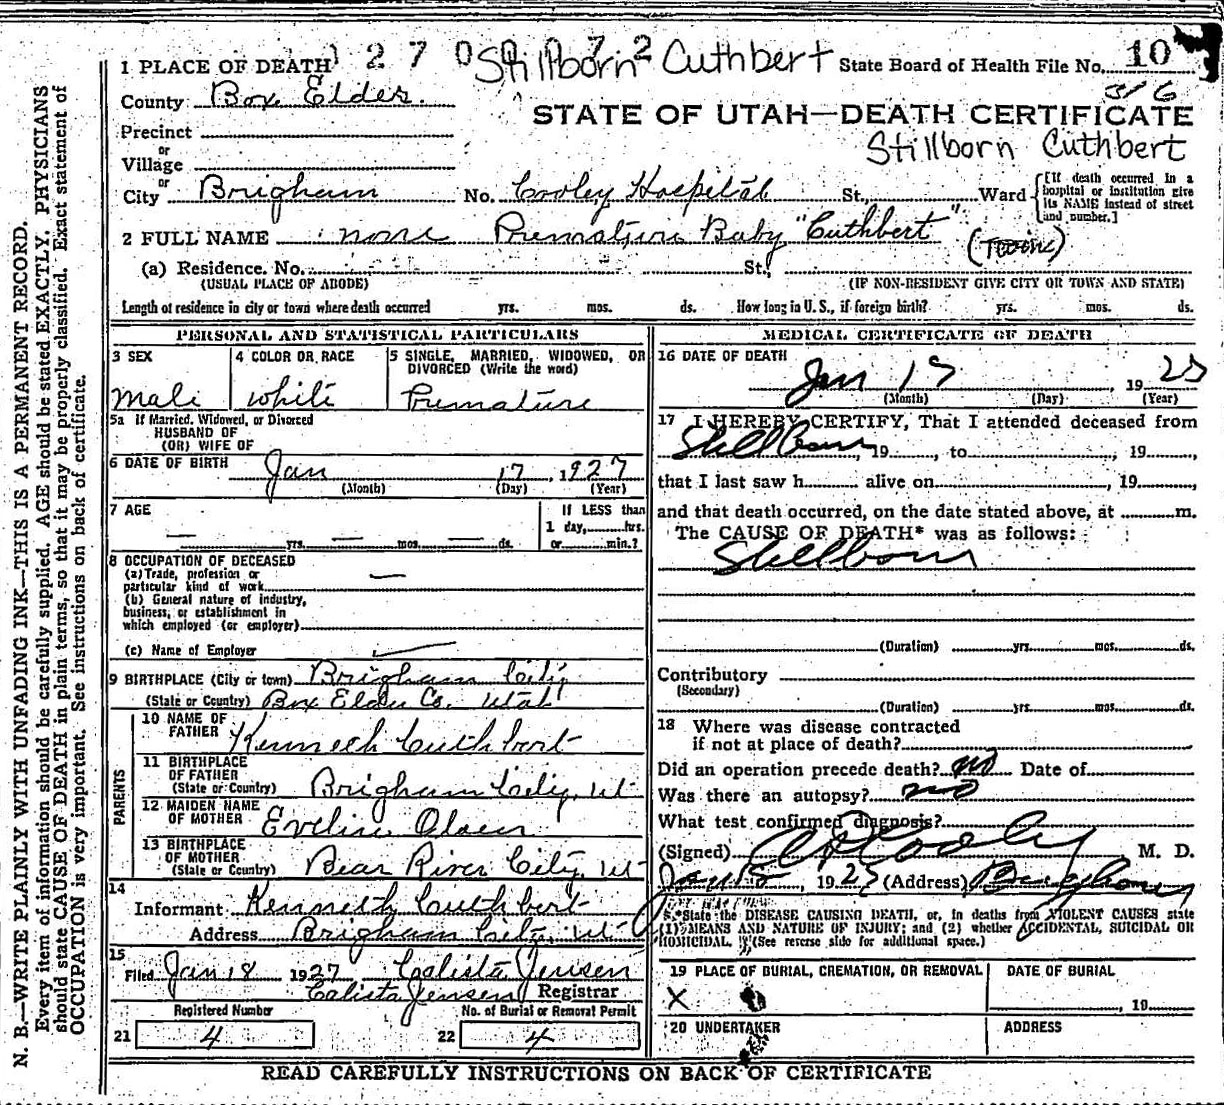 1 PLACE OF DEATH 2 7 0 0 0 7 2 Stillborn Cuthbert State Board of Health File No. 10
316
County Box Elder.
STATE OF UTAH—DEATH CERTIFICATE
Precinct
or
Stillborn Cuthbert
Village
or
City Brigham No. Cooley Hospital St., Ward [If death occurred in a hospital or institution give its NAME instead of street and number.]
2 FULL NAME none Premature Baby "Cuthbert" (Twin)
(a) Residence. No. St.,
(USUAL PLACE OF ABODE) (IF NON-RESIDENT GIVE CITY OR TOWN AND STATE)
Length of residence in city or town where death occurred yrs. mos. ds. How long in U. S., if foreign birth? yrs. mos. ds.
PERSONAL AND STATISTICAL PARTICULARS
3 SEX
Male
4 COLOR OR RACE
White
5 SINGLE, MARRIED, WIDOWED, OR
DIVORCED (Write the word)
Premature
5a If Married, Widowed, or Divorced
HUSBAND OF
(OR) WIFE OF
6 DATE OF BIRTH Jan 17, 1927
(Month) (Day) (Year)
7 AGE
— yrs. — mos. — ds.
If LESS than
1 day, hrs.
or min.?
8 OCCUPATION OF DECEASED
(a) Trade, profession or
particular kind of work —
(b) General nature of industry,
business, or establishment in
which employed (or employer)
(c) Name of Employer
9 BIRTHPLACE (City or town) Brigham City
(State or Country) Box Elder Co. Utah
PARENTS
10 NAME OF
FATHER Kenneth Cuthbert
11 BIRTHPLACE
OF FATHER
(State or Country) Brigham City, Ut
12 MAIDEN NAME
OF MOTHER Eveline Olsen
13 BIRTHPLACE
OF MOTHER
(State or Country) Bear River City, Ut
14
Informant Kenneth Cuthbert
Address Brigham City, Ut
15
Filed Jan 18 1927 Calista Jensen
Calista Jensen Registrar
Registered Number No. of Burial or Removal Permit
21 4 22 4
MEDICAL CERTIFICATE OF DEATH
16 DATE OF DEATH
Jan 17, 1927
(Month) (Day) (Year)
17 I HEREBY CERTIFY, That I attended deceased from
Stillborn, 19, to, 19,
that I last saw h alive on, 19,
and that death occurred, on the date stated above, at m.
The CAUSE OF DEATH* was as follows:
Stillborn
(Duration) yrs. mos. ds.
Contributory
(Secondary)
(Duration) yrs. mos. ds.
18 Where was disease contracted
if not at place of death?
Did an operation precede death? no Date of
Was there an autopsy? no
What test confirmed diagnosis?
(Signed) Cooley M. D.
Jan, 1927 (Address) Brigham
*State the DISEASE CAUSING DEATH, or, in deaths from VIOLENT CAUSES state
(1) MEANS AND NATURE OF INJURY; and (2) whether ACCIDENTAL, SUICIDAL OR
HOMICIDAL. (See reverse side for additional space.)
19 PLACE OF BURIAL, CREMATION, OR REMOVAL
X
DATE OF BURIAL
, 19
20 UNDERTAKER ADDRESS
READ CAREFULLY INSTRUCTIONS ON BACK OF CERTIFICATE
N. B.—WRITE PLAINLY WITH UNFADING INK—THIS IS A PERMANENT RECORD.
Every item of information should be carefully supplied. AGE should be stated EXACTLY. PHYSICIANS
should state CAUSE OF DEATH in plain terms, so that it may be properly classified. Exact statement of
OCCUPATION is very important. See instructions on back of certificate.